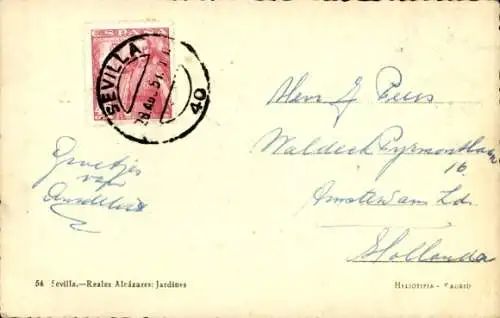 ESPAÑA
SEVILLA
40
Groetjes
van
Heer J
Waldeck Pyrmontlaan
16
Amsterdam Zd.
Hollanda
54 Sevilla.—Reales Alcázares: Jardines
HELIOTIPIA - MADRID